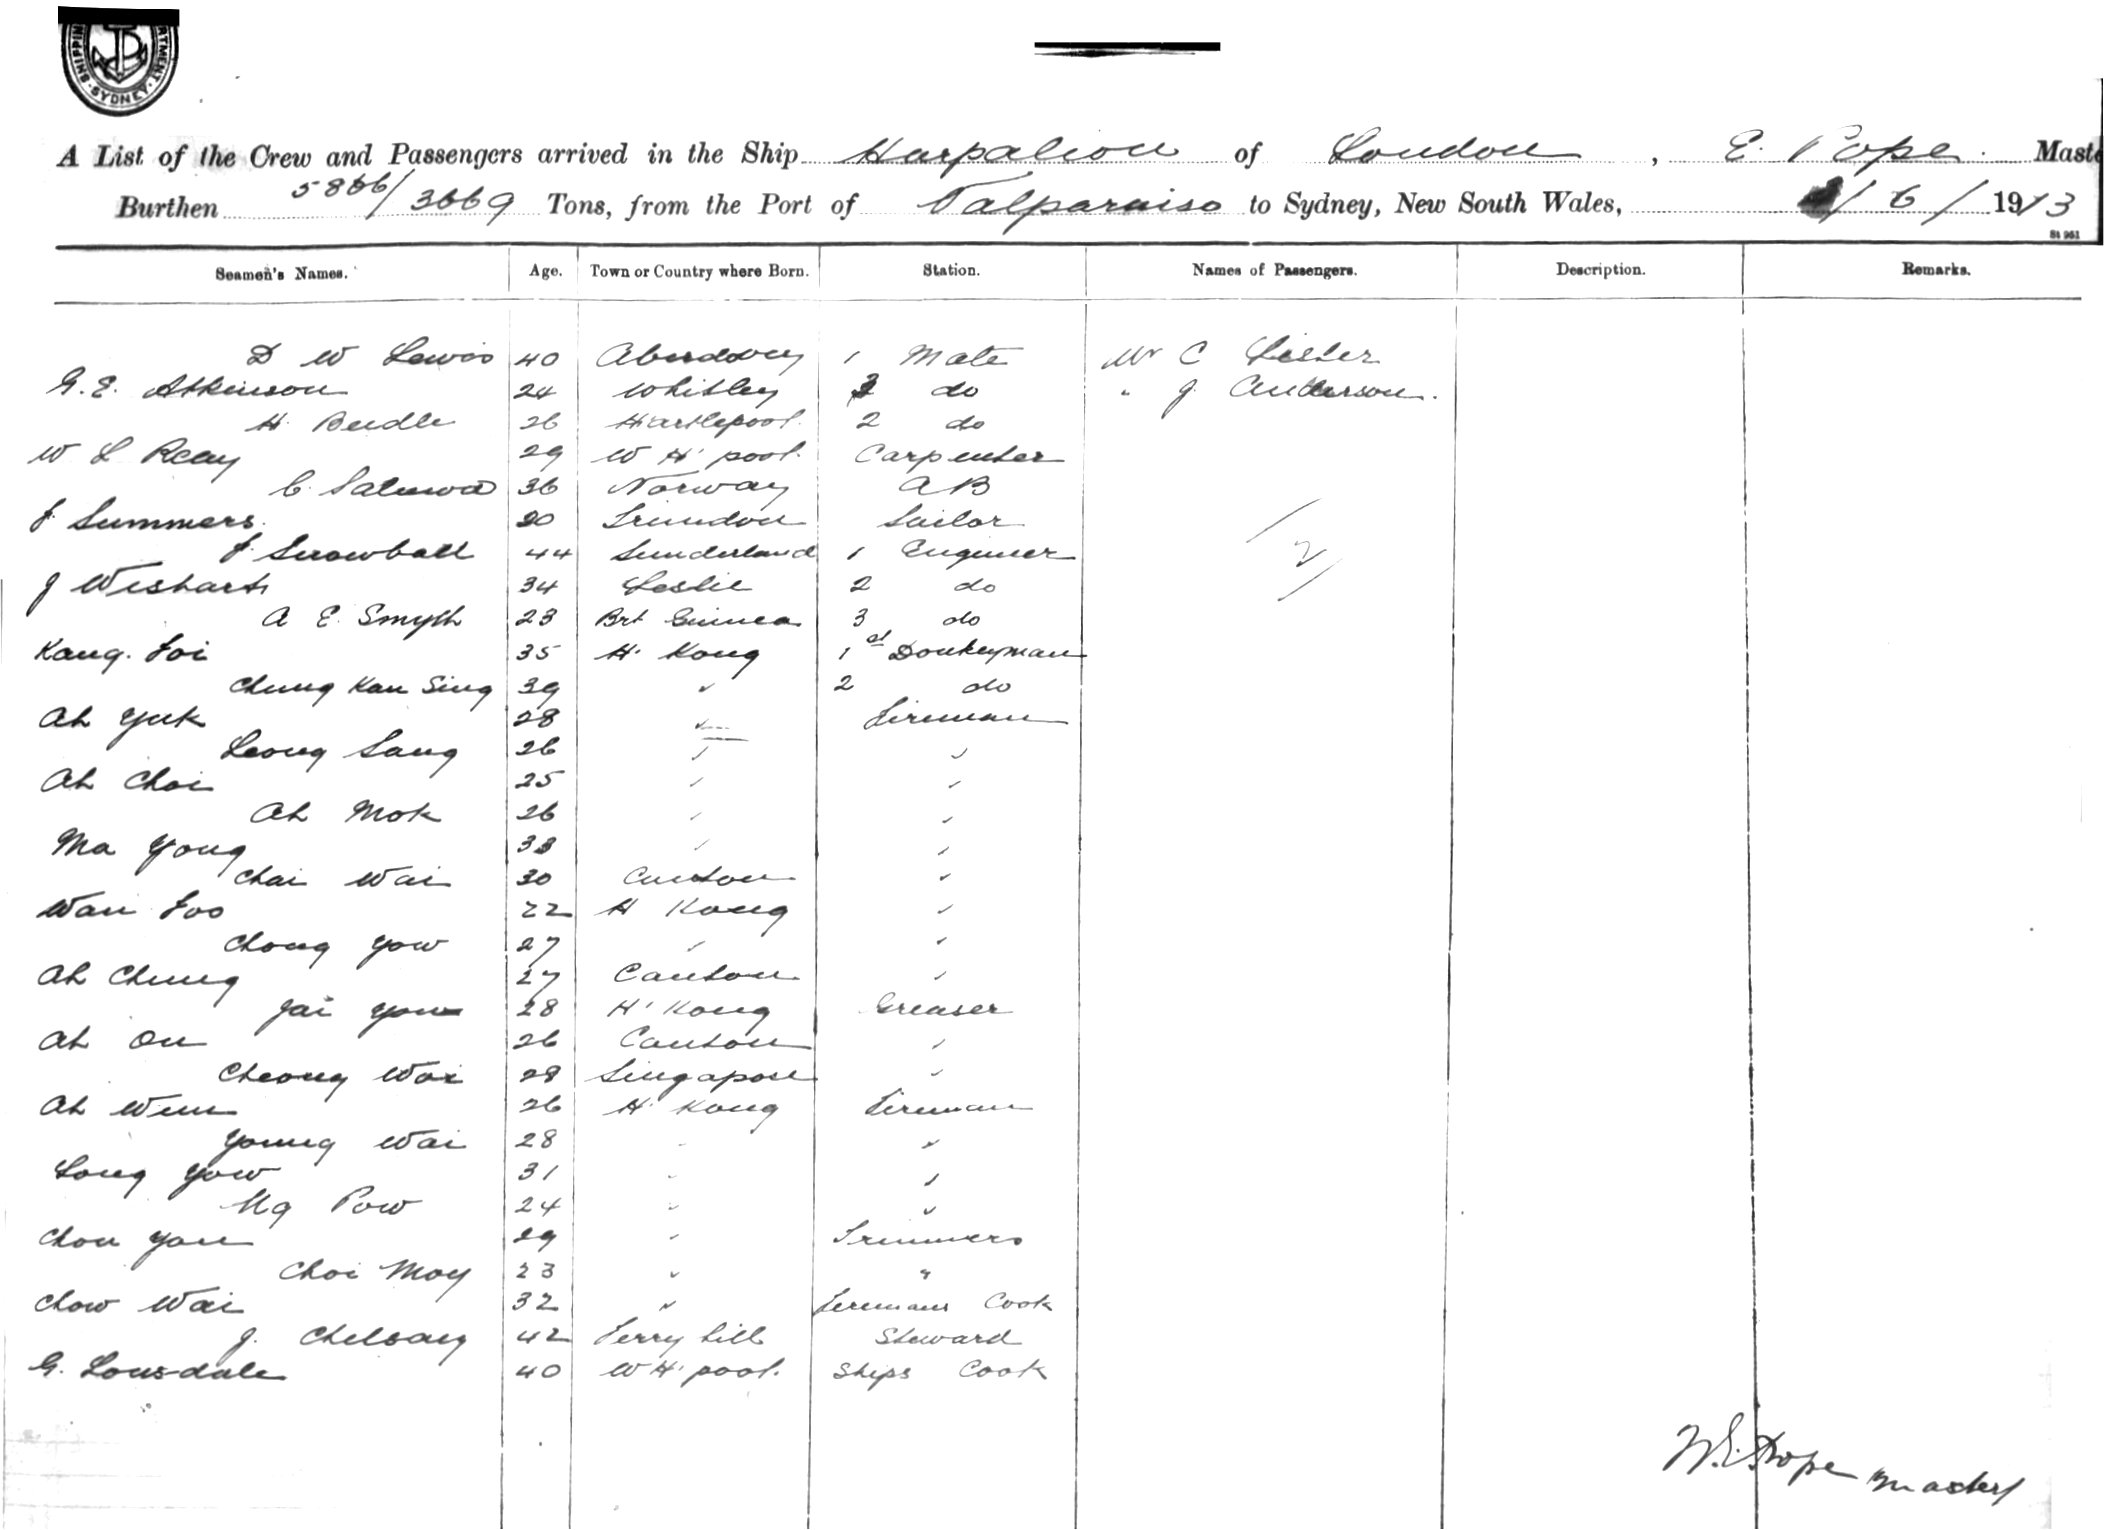 SHIPPING DEPARTMENT SYDNEY
A List of the Crew and Passengers arrived in the Ship Harpalion of London, E. Pope Master
Burthen 5866/3669 Tons, from the Port of Valparaiso to Sydney, New South Wales, /6/1913
St 961
Seamen's Names. Age. Town or Country where Born. Station. Names of Passengers. Description. Remarks.
D W Lewis 40 Aberdovey 1 Mate Mr C Lister
G. E. Atkinson 24 Whitley 3 do " J. Anderson.
H. Beedle 26 Hartlepool. 2 do
W L Reay 29 W H'pool. Carpenter
C. 36 Norway AB
J. Summers 20 Sailor
J. Snowball 44 Sunderland 1 Engineer
J Wishart 34 Leslie 2 do
A E. Smyth 23 Brt Guinea 3 do
Kang. Foi 35 H. Kong 1st Donkeyman
Chung Kan Sing 39 " 2 do
Ah Yuk 28 " Fireman
Leong Sang 26 " "
Ah Choi 25 " "
Ah Mok 26 " "
Ma Yong 33 " "
Chai Wai 30 Canton "
Wan Foo 22 H Kong "
Chong Yow 27 " "
Ah Chung 27 Canton "
Jai You 28 H' Kong Greaser
Ah On 26 Canton "
Cheong Wai 28 Singapore "
Ah Wun 26 H' Kong Fireman
Young Wai 28 " "
Long Yow 31 " "
Ng Pow 24 " "
Chou Yau 29 " Trimmers
Choi Moy 23 " "
Chow Wai 32 " Firemans Cook
J. 42 Ferry hill Steward
G. Lonsdale 40 W H'pool. Ships Cook
2
W. E. Pope Master